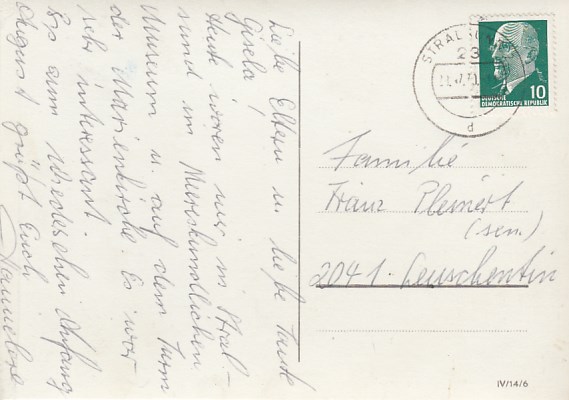 Liebe Eltern u. liebe Tante
Gisela!
Heute waren wir in Stral-
sund im Meereskundlichen
Museum u. auf dem Turm
der Marienkirche. Es war
sehr interessant.
Bis zum Wiedersehn Anfang
August grüßt Euch
Hannelore
STRALSUND
23
d
DEUTSCHE
DEMOKRATISCHE REPUBLIK
10
Familie
Franz Pleinert
(sen.)
2041 Leuschentin
IV/14/6